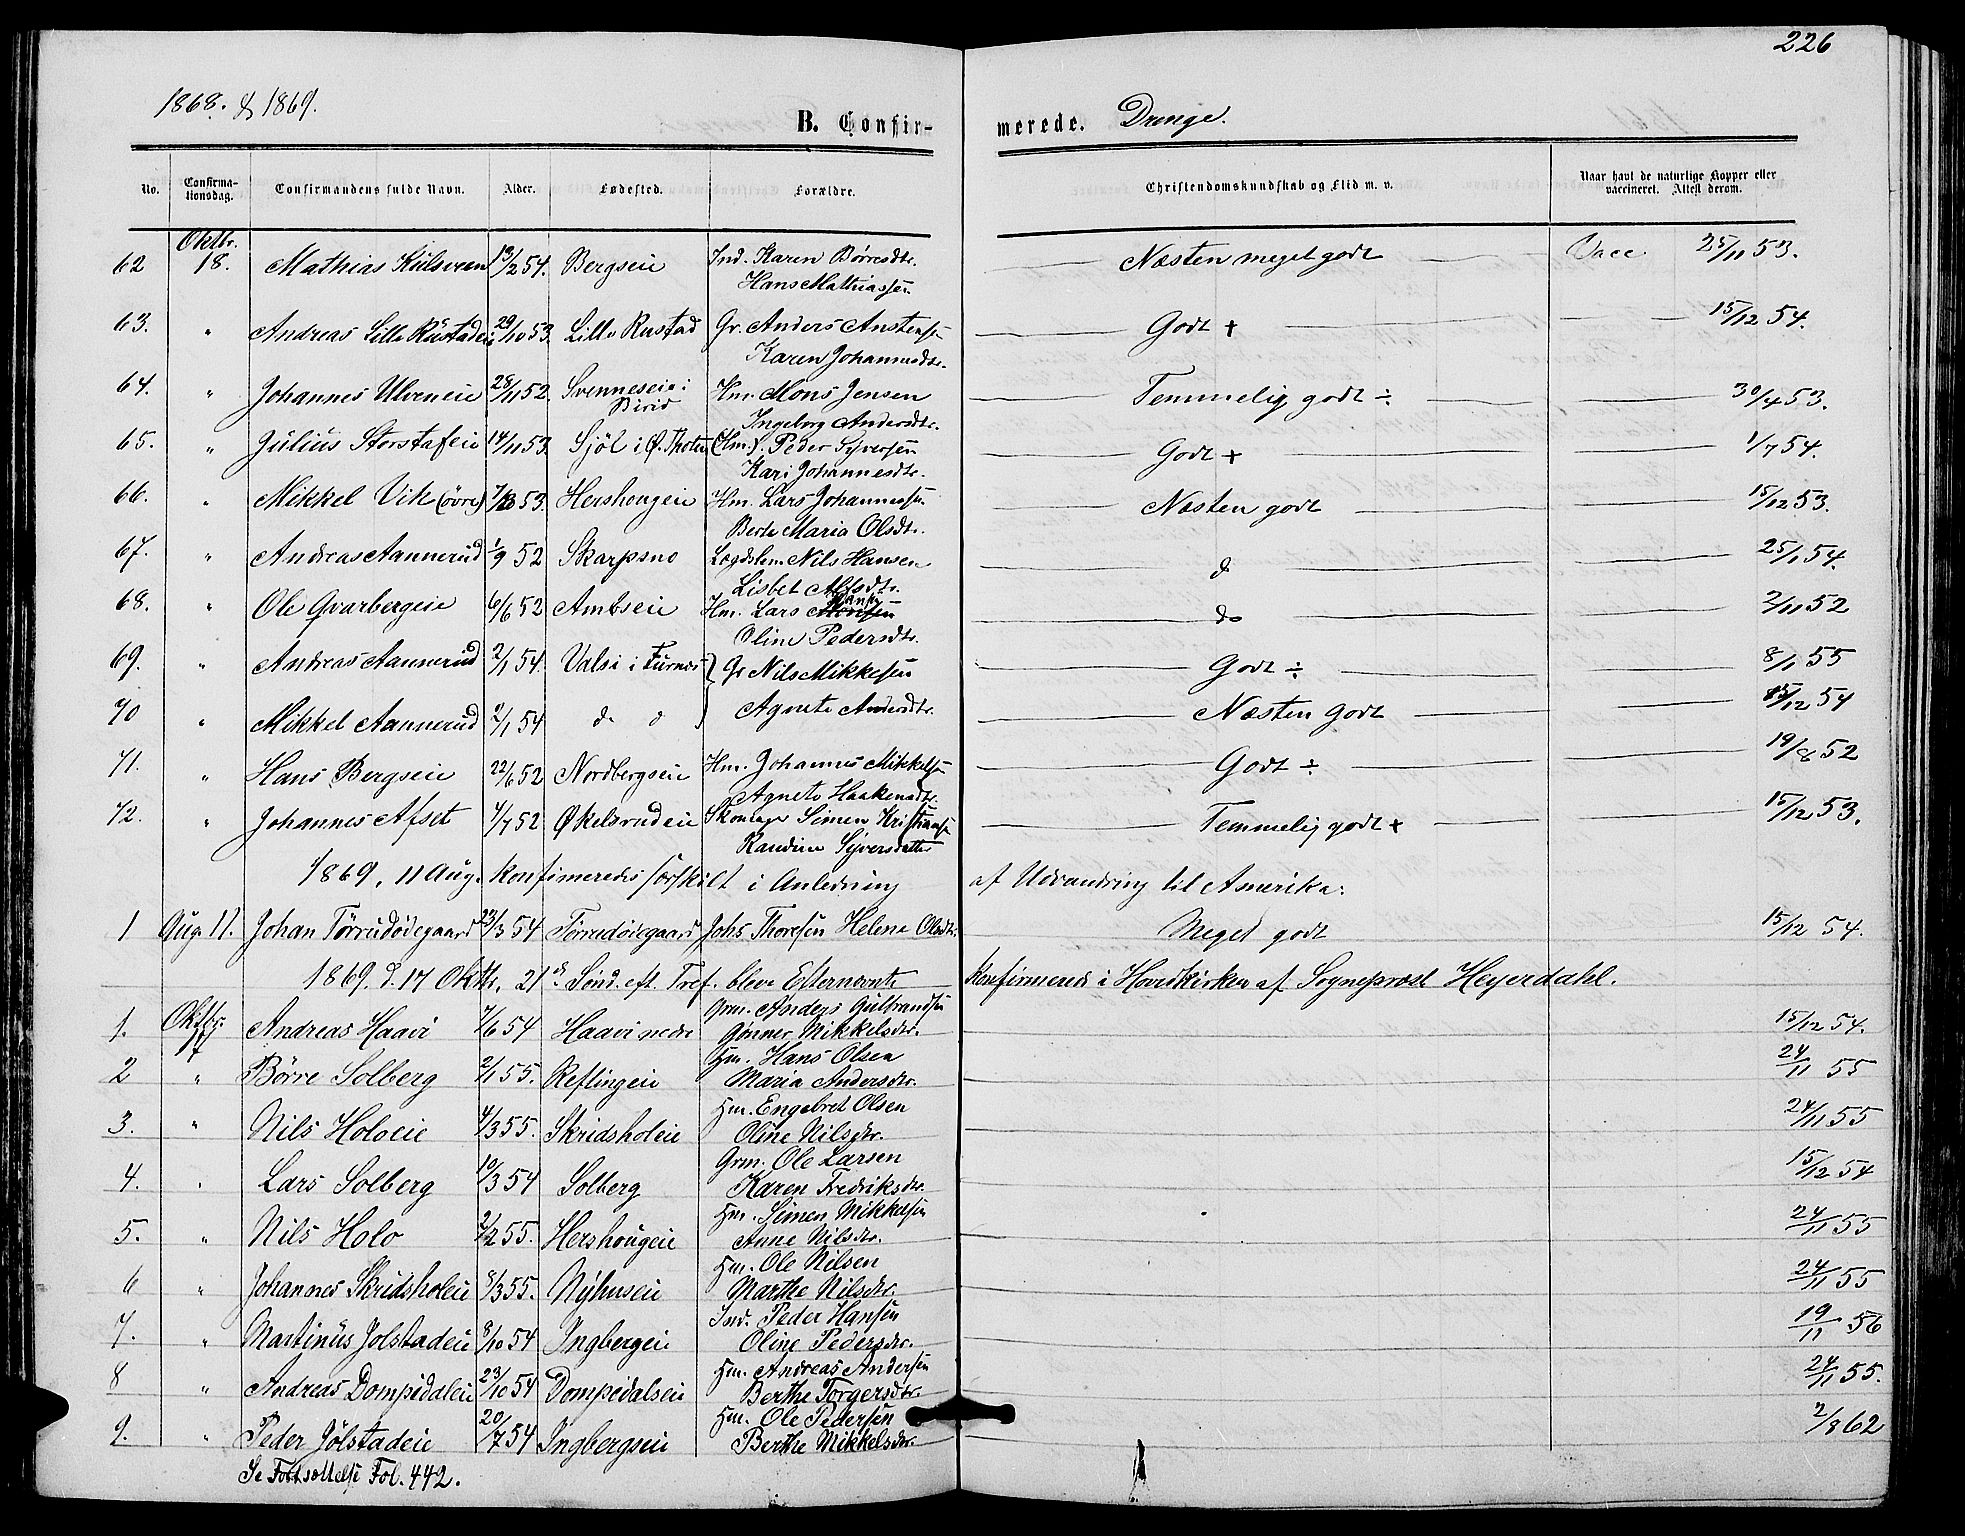 226
1868. & 1869.
B. Confirmerede. Drenge.
No. Confirmationsdag. Confirmandens fulde Navn. Alder. Fødested. Forældre. Christendomskundskab og Flid m. v. Naar havt de naturlige Kopper eller vaccineret. Attest derom.
Oktbr.
62 18. Mathias Kulsveen 13/2 54. Bergseie Ind. Karen Børresdtr. Næsten meget godt Vacc. 25/11 53.
Hans Mathiassen
63. " Andreas Lille Rustadeie 29/10 53. Lille Rustad Gr. Anders Anstensen Godt + 15/12 54.
Karen Johannesdtr.
64. " Johannes Ulveneie 28/11 52. Svenneseie i Birid Hm. Mons Jensen Temmelig godt ÷ 30/4 53.
Ingeborg Andersdtr.
65. " Julius Storstafeie 14/11 53. Sjöl i Ø. Thoten (Hm.) Peder Syversen Godt + 1/7 54.
Kari Johannesdtr.
66. " Mikkel Vik (övre) 53. Hershougeie Hm. Lars Johannessen Næsten godt 15/12 53.
Berte Maria Olsdtr.
67. " Andreas Aannerud 1/9 52 Skarpsno Lægdslem Nils Hansen d 25/1 54.
Lisbet
68. " Ole Qvarbergeie 6/6 52 Ambseie Hm. Lars Hansen do 2/11 52
Oline Pedersdtr.
69. " Andreas Aannerud 2/1 54. Valsi i Furnes } Gr Nils Mikkelsen Godt ÷ 8/1 55
70 " Mikkel Aannerud 2/1 54 do d } Agnete Andersdtr. Næsten Godt 15/12 54
71. " Hans Bergseie 22/6 52 Nordbergseie Hm. Johannes Mikkelsen Godt ÷ 19/8 52
Agnete Haakensdtr.
72. " Johannes Afset 4/7 52 Økelsrudeie Skomager Simen Kristiansen Temmelig godt + 15/12 53.
Randine Syversdatter
1869, 11 Aug. konfirmeredes særskilt i Anledning af Udvandring til Amerika:
1 Aug. 11. Johan Törrudødegaard 23/3 54 Törrudødegaard Johs Thoresen Helene Olsdtr. Meget godt 15/12 54.
1869. d. 17 Oktbr. 21de Sönd. eft. Tref. bleve Efternævnte Konfirmerede i Hovedkirken af Sognepræst Heyerdahl.
1. Oktbr. 17 Andreas Haavi 7/6 54 Haavi nedre Grm. Anders Gulbrandsen 15/12 54.
Gunner Mikkelsdtr.
2 " Börre Solberg 2/1 55. Reflingeie Hm. Hans Olsen 24/11 55
Maria Andersdtr.
3. " Nils Holoeie 4/3 55. Skridsholeie Hm. Engebret Olsen 24/11 55
Oline Nilsdtr.
4. " Lars Solberg 10/3 54 Solberg Grm. Ole Larsen 15/12 54
Karen Fredriksdtr.
5. " Nils Holo 2/2 55. Hershougeie Hm. Simen Mikkelsen 24/11 55
Anne Nilsdtr.
6 " Johannes Skridsholeie 8/3 55. Nyhuseie Hm. Ole Nilsen 24/11 55
Marthe Nilsdtr.
7. " Martinus Jolstadeie 8/10 54 Ingbergeie Ind. Peder Hansen 19/11 56
Oline Pedersdtr.
8 " Andreas Dompidaleie 23/10 54 Dompidalseie Hm. Andreas Andersen 24/11 55.
Berthe Torgersdtr.
9. " Peder Jölstadeie 20/7 54 Ingbergseie Hm. Ole Pedersen 2/8 62
Berthe Mikkelsdtr.
Se Fortsættelse Fol. 442.